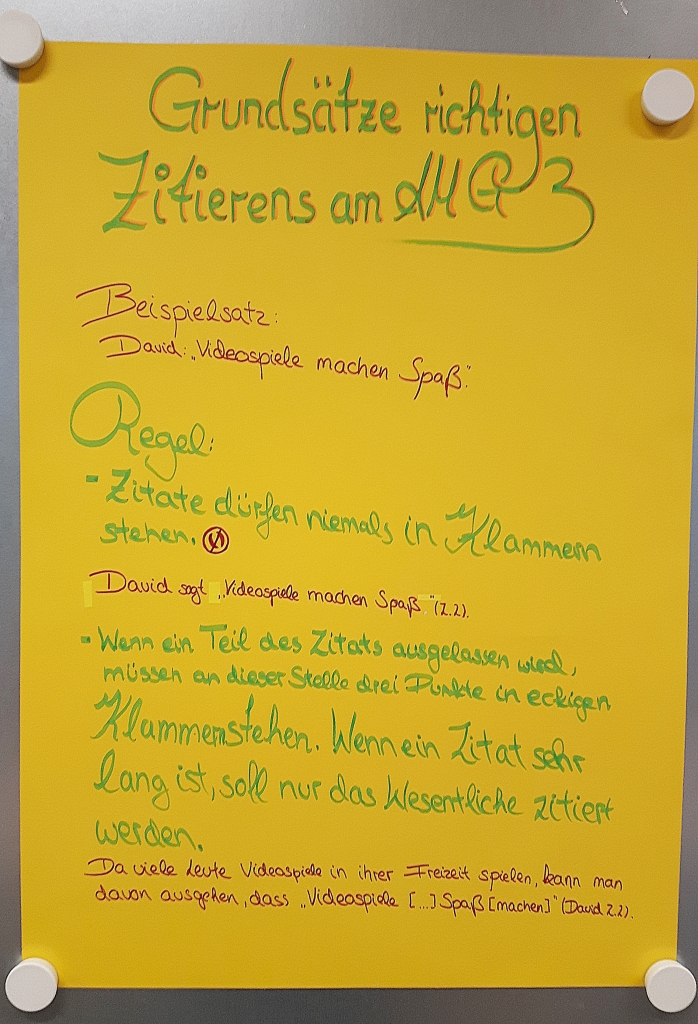 Grundsätze richtigen
Zitierens am AMG 3
Beispielsatz:
David: „Videospiele machen Spaß."
Regel:
- Zitate dürfen niemals in Klammern
stehen.
David sagt „Videospiele machen Spaß" (Z.2).
- Wenn ein Teil des Zitats ausgelassen wird,
müssen an dieser Stelle drei Punkte in eckigen
Klammern stehen. Wenn ein Zitat sehr
lang ist, soll nur das Wesentliche zitiert
werden.
Da viele Leute Videospiele in ihrer Freizeit spielen, kann man
davon ausgehen, dass „Videospiele [...] Spaß [machen]" (David Z.2).